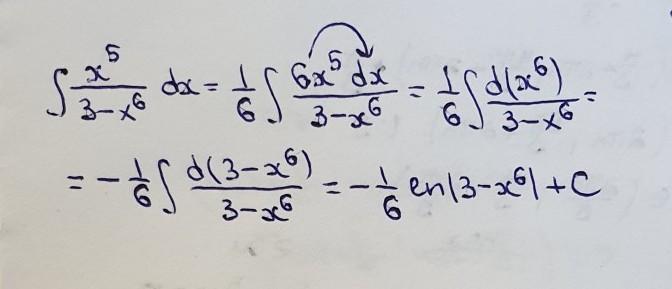 ∫ x⁵/(3-x⁶) dx = 1/6 ∫ 6x⁵dx/(3-x⁶) = 1/6 ∫ d(x⁶)/(3-x⁶) =
= -1/6 ∫ d(3-x⁶)/(3-x⁶) = -1/6 ln|3-x⁶| + C